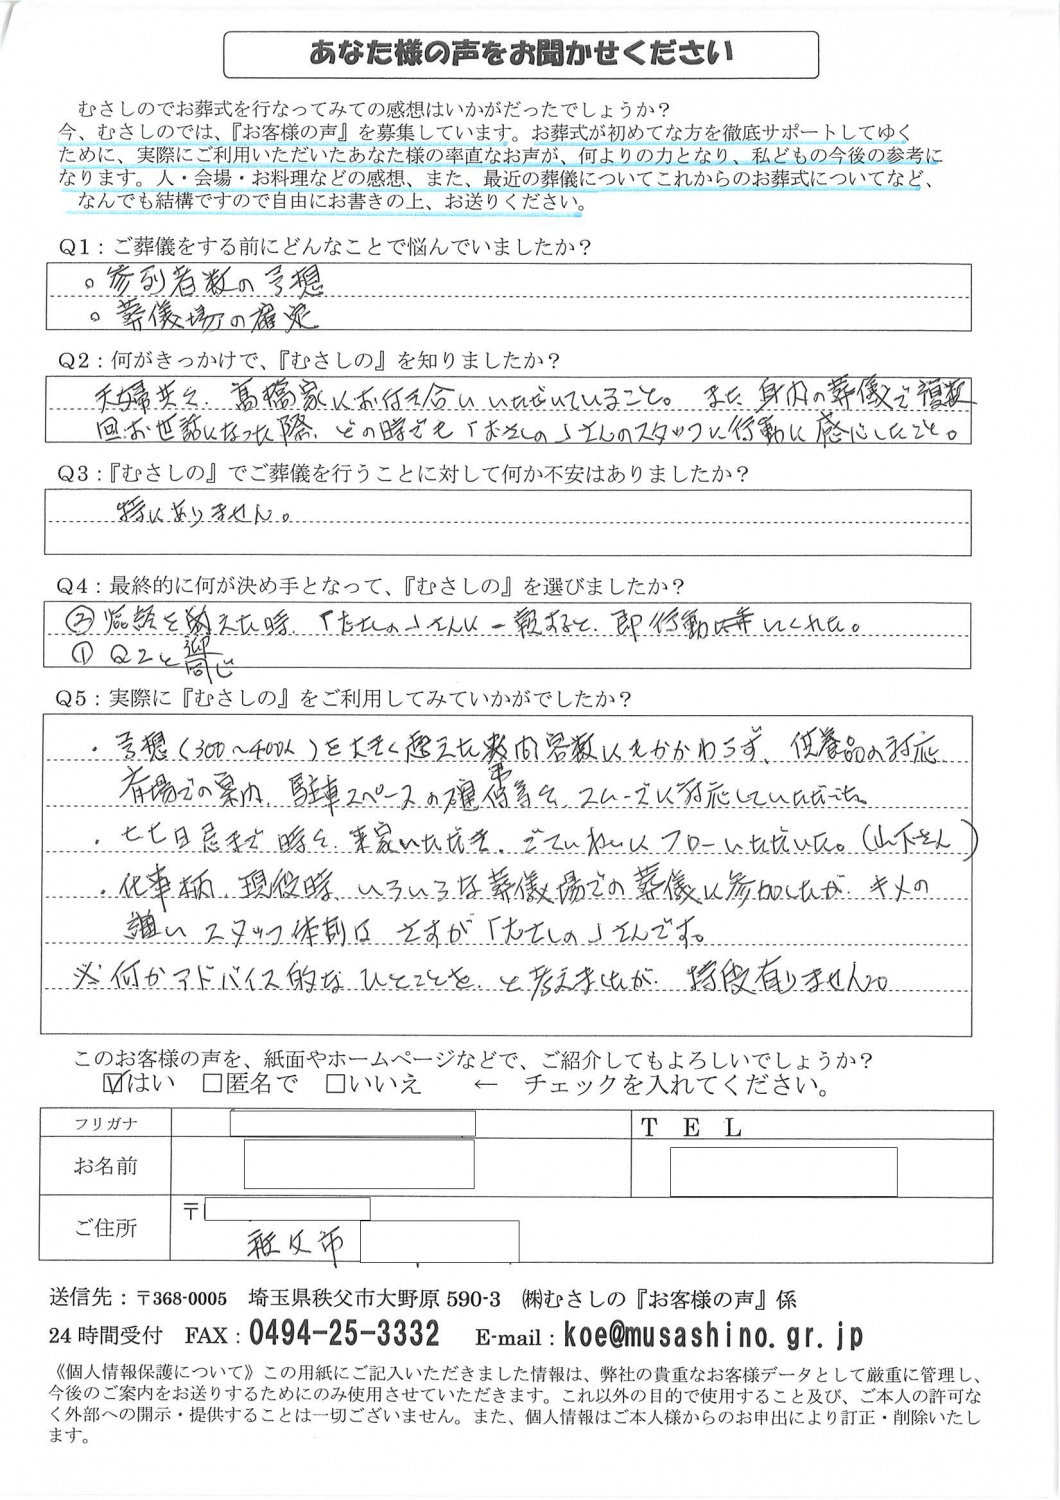 あなた様の声をお聞かせください
むさしのでお葬式を行なってみての感想はいかがだったでしょうか？
今、むさしのでは、『お客様の声』を募集しています。お葬式が初めてな方を徹底サポートしてゆく
ために、実際にご利用いただいたあなた様の率直なお声が、何よりの力となり、私どもの今後の参考に
なります。人・会場・お料理などの感想、また、最近の葬儀についてこれからのお葬式についてなど、
なんでも結構ですので自由にお書きの上、お送りください。
Q1：ご葬儀をする前にどんなことで悩んでいましたか？
○参列者数の予想
○葬儀場の確定
Q2：何がきっかけで、『むさしの』を知りましたか？
夫婦共々、髙橋家にお付き合いいただいていること。また、身内の葬儀で複数
回お世話になった際、どの時でも「むさしの」さんのスタッフに行動に感心したこと。
Q3：『むさしの』でご葬儀を行うことに対して何か不安はありましたか？
特にありません。
Q4：最終的に何が決め手となって、『むさしの』を選びましたか？
② 臨終を迎えた時、「むさしの」さんに一報すると、即行動に来てくれた。
① Q2と同じ
Q5：実際に『むさしの』をご利用してみていかがでしたか？
・予想（300～400人）を大きく超えた弔問客数にもかかわらず、供養品の対応
斎場での案内、駐車スペースの確保等を、スムーズに対応していただいた。
・七七日忌まで時々、来家いただき、ごていねいにフローいただいた。（山下さん）
・仕事柄、現役時、いろいろな葬儀場での葬儀に参加したが、キメの
スタッフ体制はさすが「むさしの」さんです。
※何かアドバイス的なひとことを、と考えましたが、特段有りません。
このお客様の声を、紙面やホームページなどで、ご紹介してもよろしいでしょうか？
☑はい　□匿名で　□いいえ　←　チェックを入れてください。
フリガナ　TEL
お名前
ご住所　〒
秩父市
送信先：〒368-0005　埼玉県秩父市大野原590-3　㈱むさしの『お客様の声』係
24時間受付　FAX：0494-25-3332　E-mail：koe@musashino.gr.jp
《個人情報保護について》この用紙にご記入いただきました情報は、弊社の貴重なお客様データとして厳重に管理し、
今後のご案内をお送りするためにのみ使用させていただきます。これ以外の目的で使用すること及び、ご本人の許可な
く外部への開示・提供することは一切ございません。また、個人情報はご本人様からのお申出により訂正・削除いたし
ます。